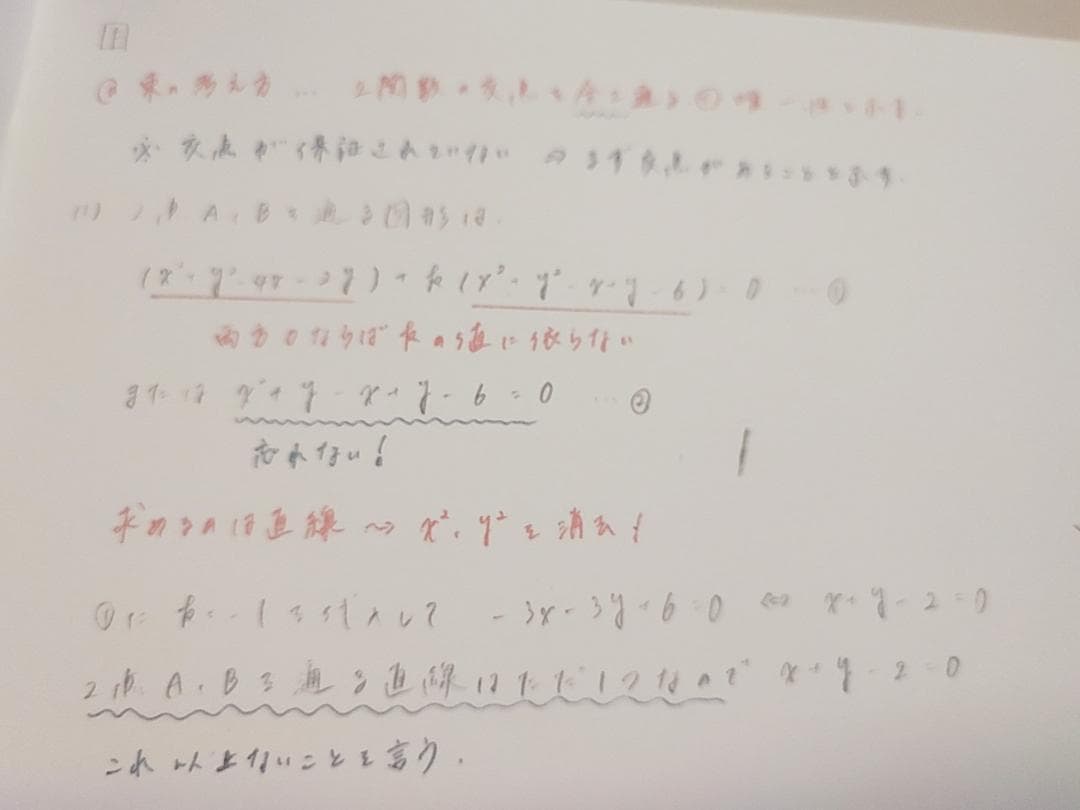 1
束の考え方 … 2関数の交点を全て通る
※ 交点が保証されていない ⇒ まず交点があることを示す.
(1) 2点 A, B を通る図形は.
(x²+y²-4x-2y)+k(x²+y²-x+y-6)=0 … ①
両方0ならば kの値に依らない
または x²+y²-x+y-6=0 … ②
忘れない!
求めるのは直線 〜> x², y² を消去!
①に k=-1 を代入して -3x-3y+6=0 ⇔ x+y-2=0
2点 A, B を通る直線はただ1つなので x+y-2=0
これ以上ないことを言う.